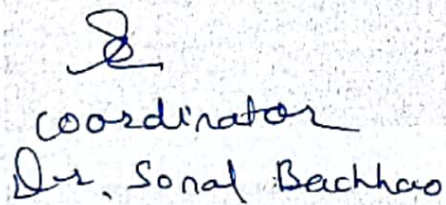 coordinator
Dr. Sonal Bachhao